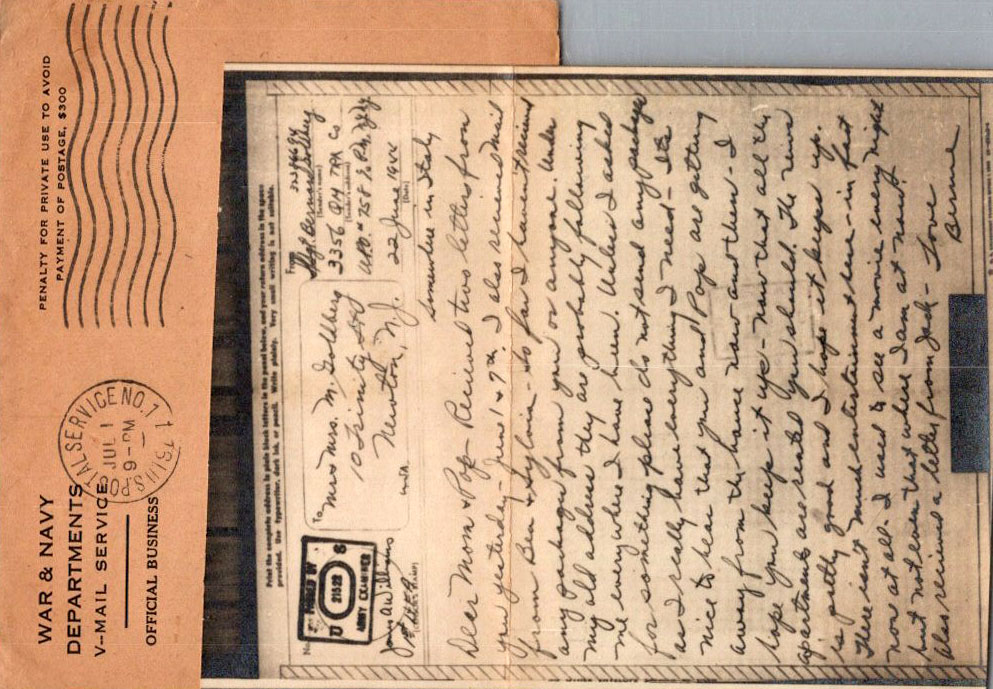 WAR & NAVY
DEPARTMENTS
V-MAIL SERVICE
OFFICIAL BUSINESS
U.S. POSTAL SERVICE NO. 1
JUL 1
9-PM
PENALTY FOR PRIVATE USE TO AVOID
PAYMENT OF POSTAGE, $300
Print the complete address in plain block letters in the panel below, and your return address in the space
provided. Use typewriter, dark ink, or pencil. Write plainly. Very small writing is not suitable.
No.
PASSED BY
U S
ARMY EXAMINER
(CENSOR'S STAMP)
To
Mr & Mrs. M. Goldberg
10 Trinity
Newton, N.J.
USA
From
Sgt. Bernie Goldberg
(Sender's name)
3356 QM TRK Co
(Sender's address)
APO # 758 % P.M. NY
22 June 1944
(Date)
Somewhere in Italy
Dear Mom & Pop - Received two letters from
you yesterday - June 1 & 7th. I also received mail
from Ben & Sylvia - So far I haven't received
any packages from you or anyone. Under
my old address they are probably following
me everywhere I have been. Unless I asked
for something please do not send any package
as I really have everything I need - It's
nice to hear that you and Pop are getting
away from the house now and then - I
hope you keep it up - now that all the
apartments are rented you should. The news
is pretty good and I hope it keeps up.
There isn't much entertainment here - in fact
none at all. I used to see a movie every night
but not even that where I am at now.
Also received a letter from Jack -
Love
Bernie